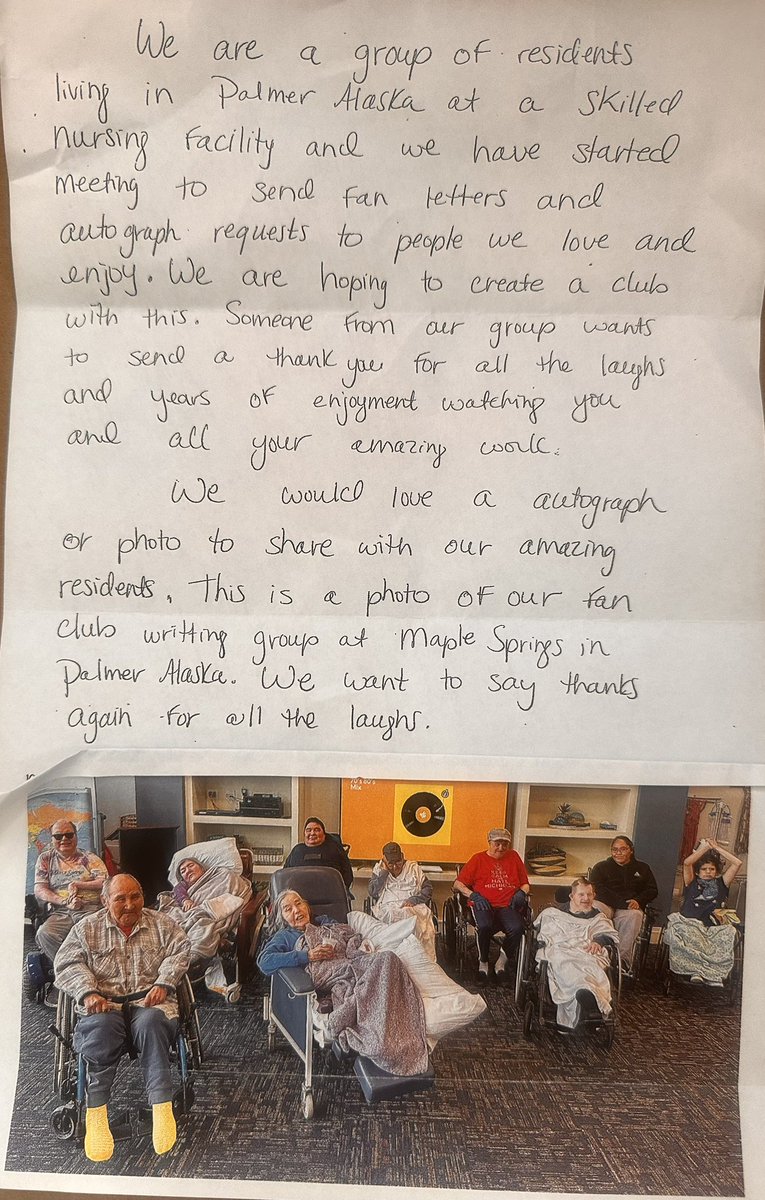 We are a group of residents
living in Palmer Alaska at a skilled
nursing facility and we have started
meeting to send fan letters and
autograph requests to people we love and
enjoy. We are hoping to create a club
with this. Someone from our group wants
to send a thank you for all the laughs
and years of enjoyment watching you
and all your amazing work.
We would love a autograph
or photo to share with our amazing
residents. This is a photo of our fan
club writting group at Maple Springs in
Palmer Alaska. We want to say thanks
again for all the laughs.
Mix
KEEP
CALM